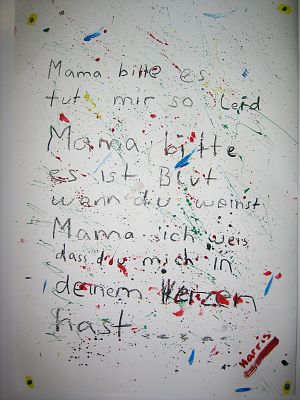 Mama bitte es
tut mir so Leid
Mama bitte
es ist Blut
wann du weinst
Mama ich weis
dass du mich in
deinem Herzen
hast......
Harris